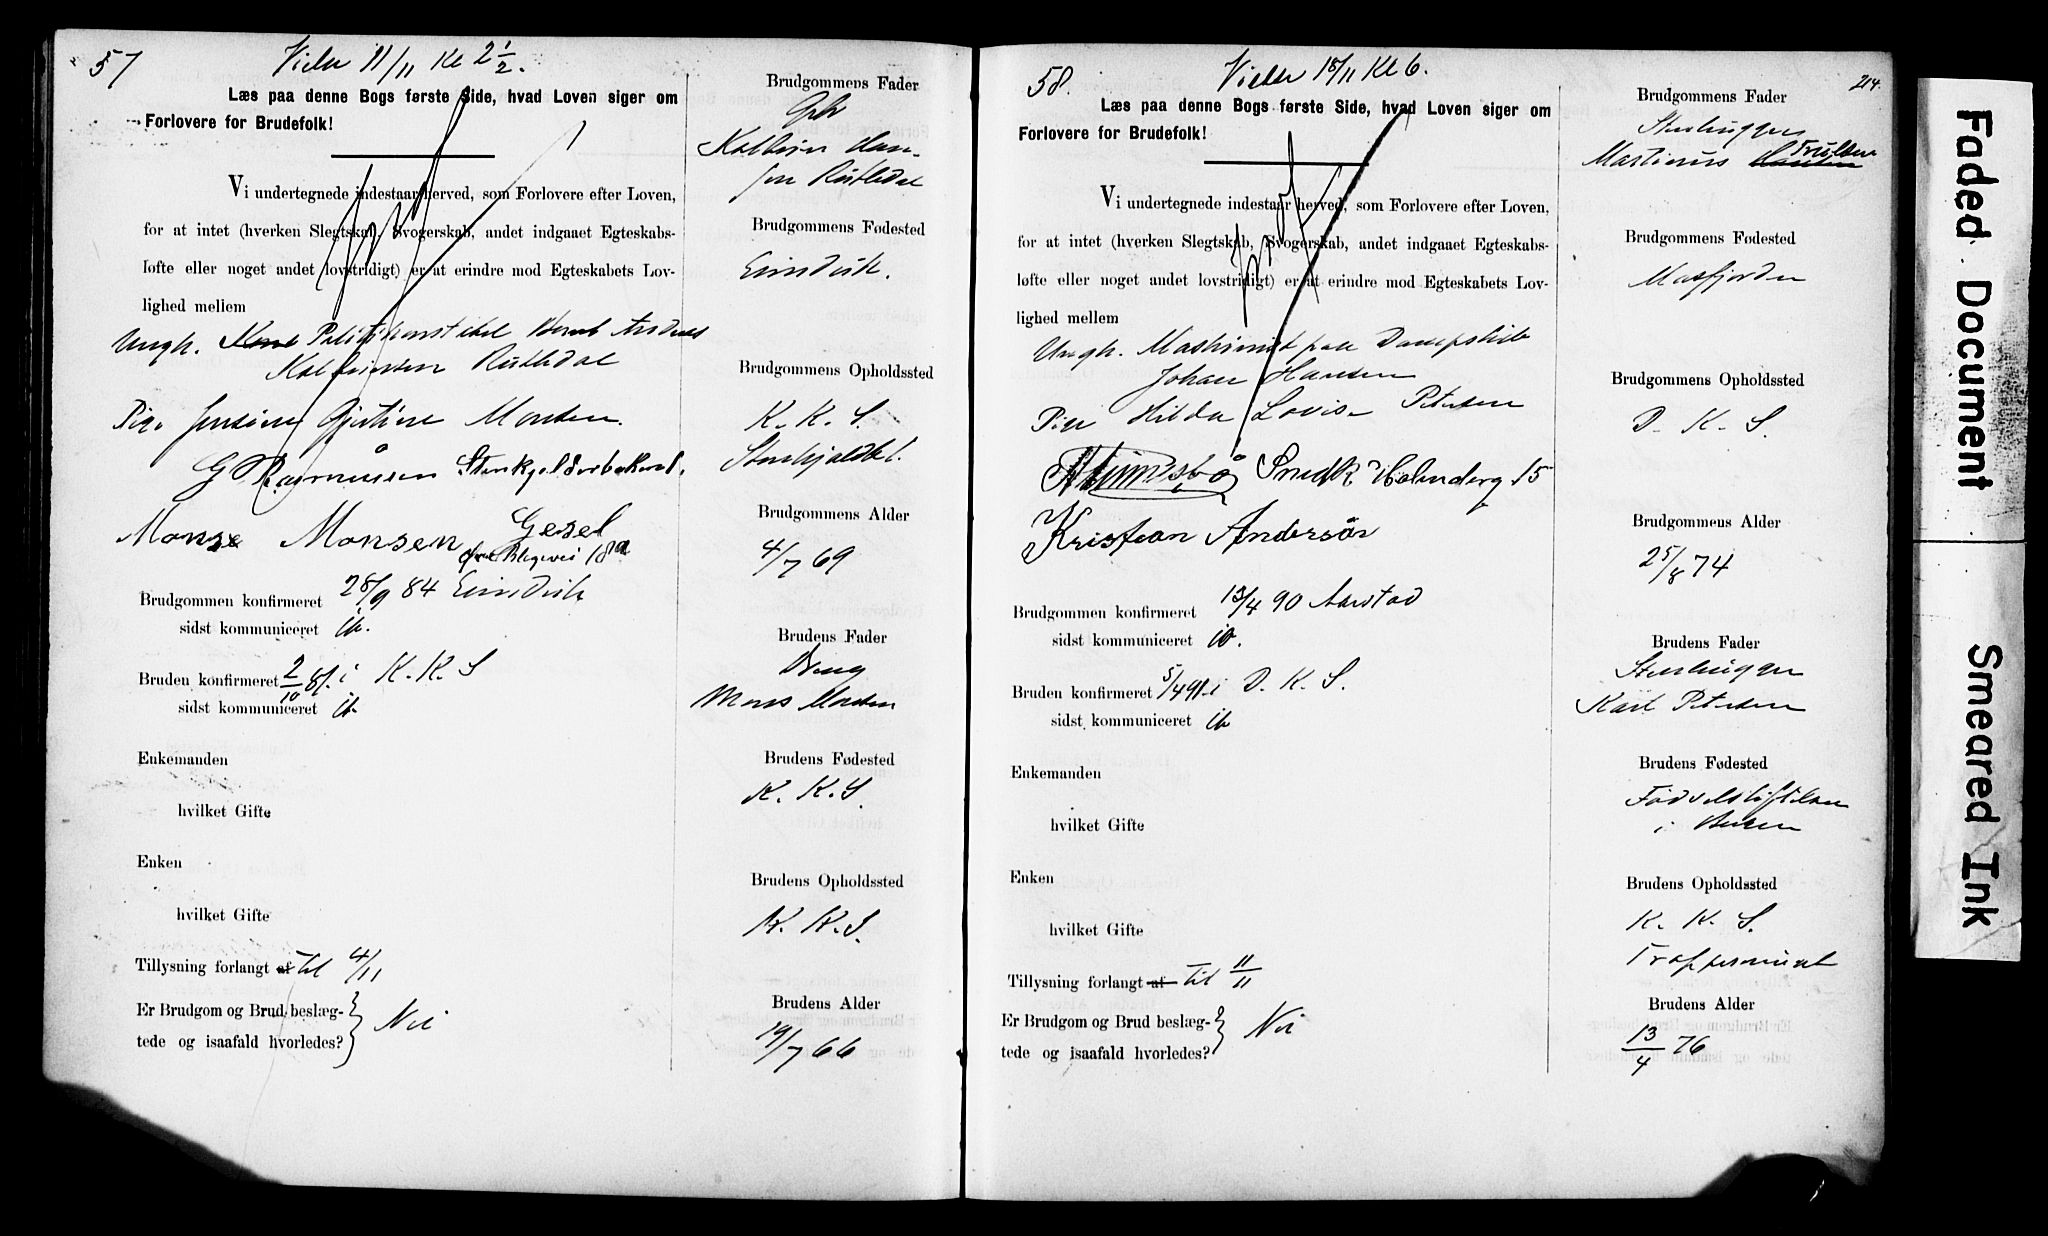 57
Vielse 11/11 Kl 2 1/2.
Læs paa denne Bogs første Side, hvad Loven siger om
Forlovere for Brudefolk!
Vi undertegnede indestaar herved, som Forlovere efter Loven,
for at intet (hverken Slegtskab, Svogerskab, andet indgaaet Egteskabs-
løfte eller noget andet lovstridigt) er at erindre mod Egteskabets Lov-
lighed mellem
Ungk. Politikonstabel
Rutledal
Pige Jensine Gjertine Monsen.
G Rasmussen Stenkjelderbakken 1.
Monse Monsen Gesel
Blegevei 18a
Brudgommen konfirmeret 28/9 84 Eivindvik
sidst kommuniceret ib.
Bruden konfirmeret 2/10 81 i K. K. S
sidst kommuniceret ib
Enkemanden
hvilket Gifte
Enken
hvilket Gifte
Tillysning forlangt af til 4/11
Er Brudgom og Brud beslæg-
tede og isaafald hvorledes? Nei
Brudgommens Fader
Gbr
Kolbein Han-
sen Rutledal
Brudgommens Fødested
Eivindvik.
Brudgommens Opholdssted
K. K. S.
Brudgommens Alder
4/7 69
Brudens Fader
Mons Monsen
Brudens Fødested
K. K. S.
Brudens Opholdssted
K. K. S.
Brudens Alder
19/7 66
58.
Vielse 18/11 Kl 6.
Læs paa denne Bogs første Side, hvad Loven siger om
Forlovere for Brudefolk!
Vi undertegnede indestaar herved, som Forlovere efter Loven,
for at intet (hverken Slegtskab, Svogerskab, andet indgaaet Egteskabs-
løfte eller noget andet lovstridigt) er at erindre mod Egteskabets Lov-
lighed mellem
Ungk. Maskinist paa Dampskib
Johan Hansen
Pige Hilda Lovise Petersen
Snedk Holmberg 15
Kristian Andersen
Brudgommen konfirmeret 13/4 90 Aarstad
sidst kommuniceret ib.
Bruden konfirmeret 5/4 91 i D. K. S.
sidst kommuniceret ib
Enkemanden
hvilket Gifte
Enken
hvilket Gifte
Tillysning forlangt af til 11/11
Er Brudgom og Brud beslæg-
tede og isaafald hvorledes? Nei
214.
Brudgommens Fader
Stenhugger
Martinus Hansen Trulsen
Brudgommens Fødested
Masfjorden
Brudgommens Opholdssted
D. K. S.
Brudgommens Alder
25/8 74
Brudens Fader
Stenhugger
Karl Petersen
Brudens Fødested
Fødselsstiftelsen
i Bergen
Brudens Opholdssted
K. K. S.
Brudens Alder
13/4 76
Faded Document
Smeared Ink